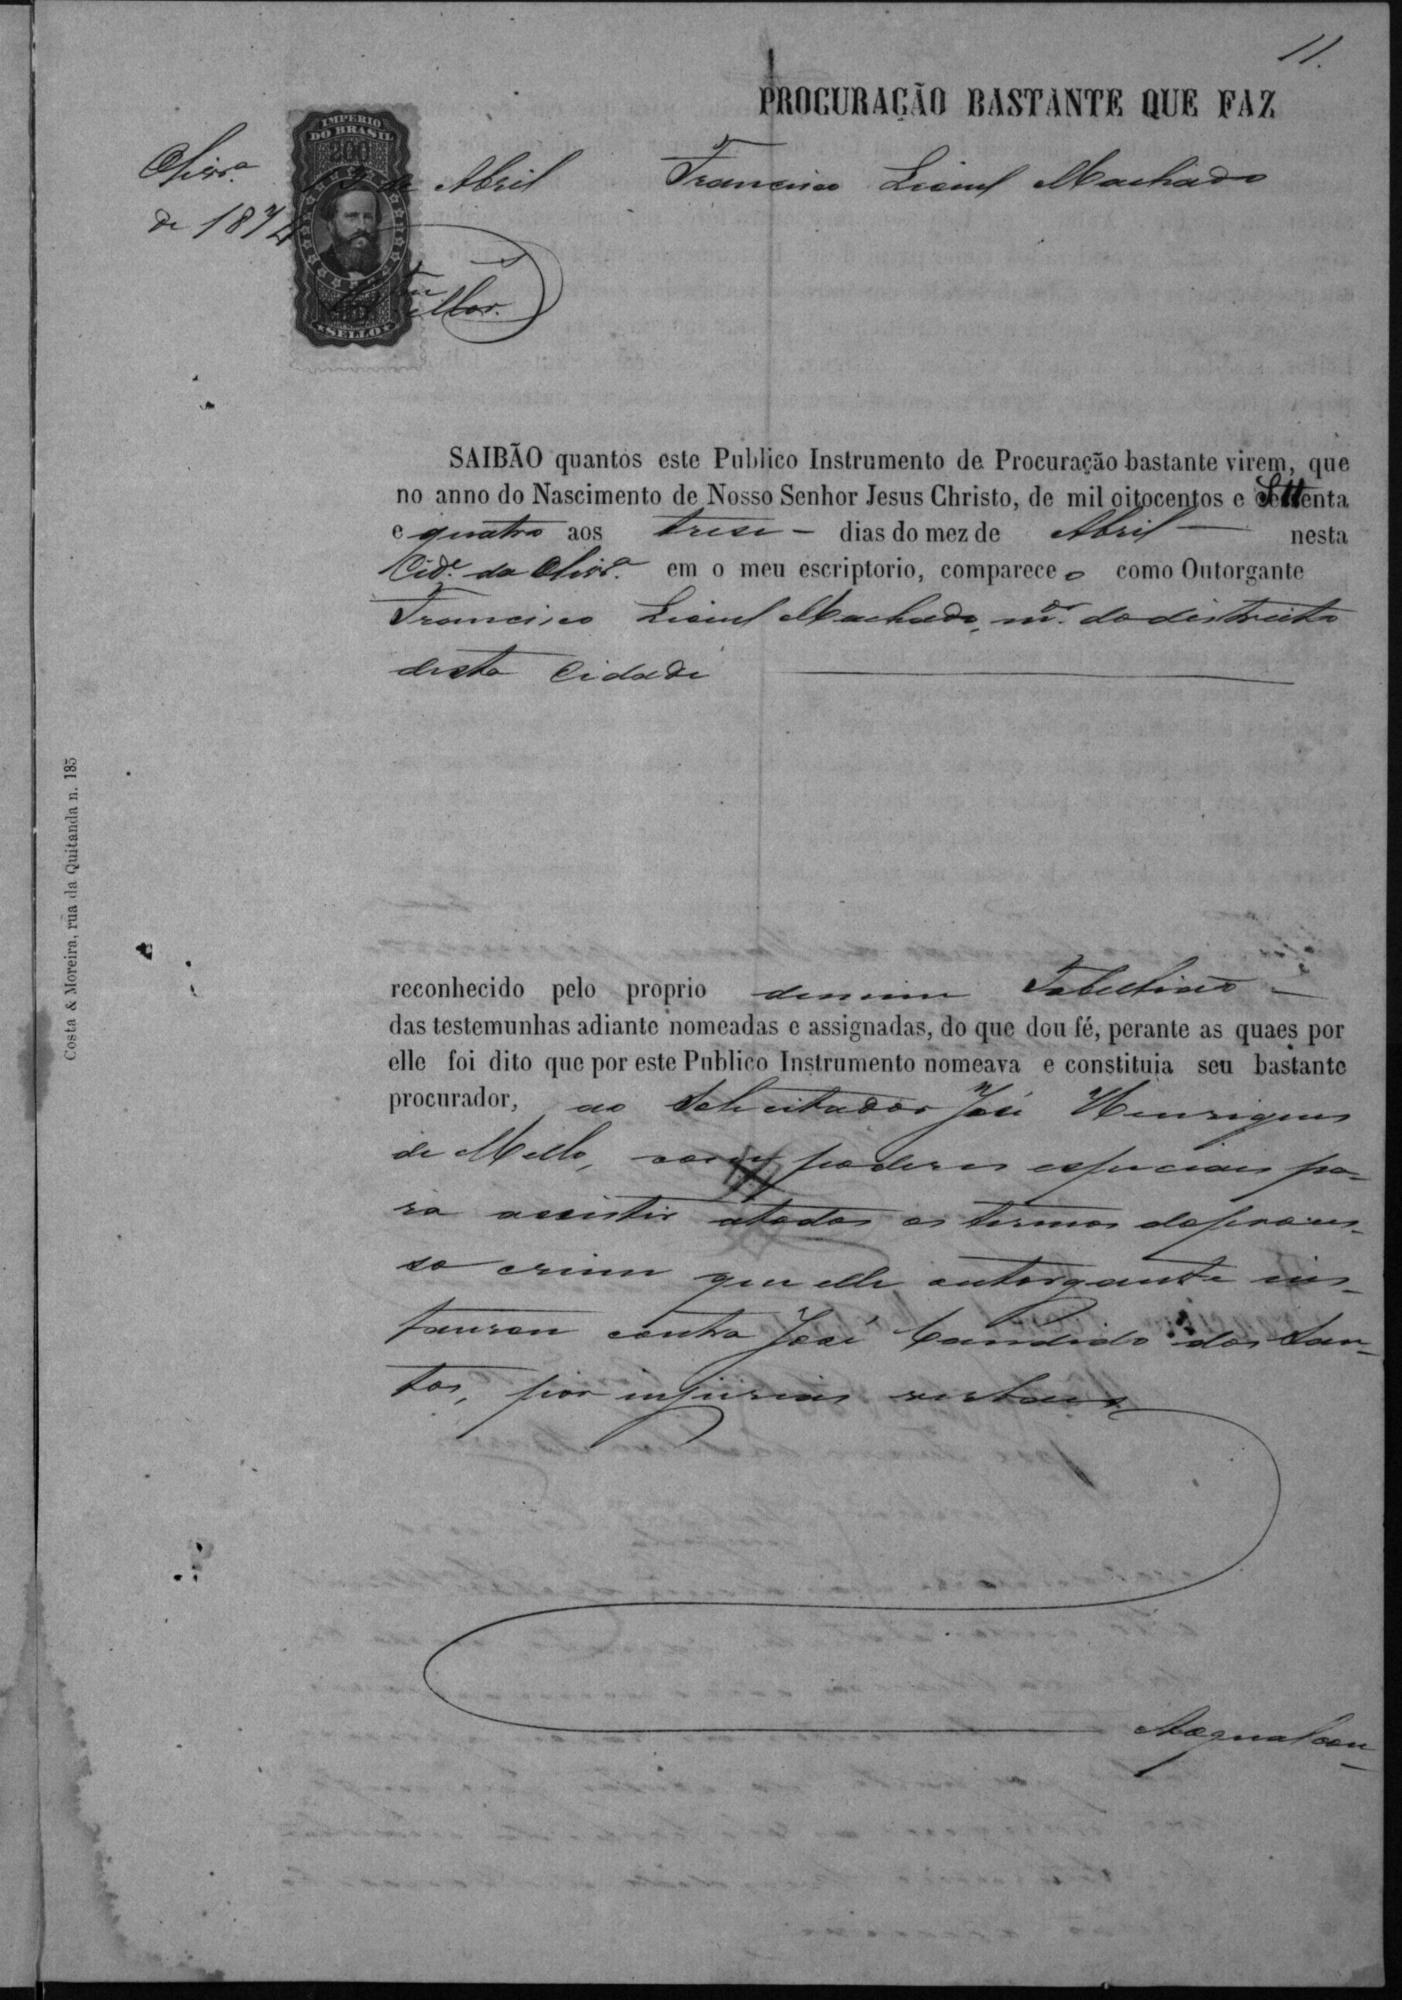 11.
PROCURAÇÃO BASTANTE QUE FAZ
Francisco Lionel Machado
IMPERIO
DO BRASIL
200
SELLO
Olivrª. 13 de Abril
de 1874
SAIBÃO quantos este Publico Instrumento de Procuração bastante virem, que
no anno do Nascimento de Nosso Senhor Jesus Christo, de mil oitocentos e Settenta
e quatro aos trese – dias do mez de Abril – nesta
Cidᵉ. da Olivrª. em o meu escriptorio, compareceo como Outorgante
Francisco Lionel Machado, mᵒʳ. do districto
desta Cidade
reconhecido pelo proprio de mim Tabellião –
das testemunhas adiante nomeadas e assignadas, do que dou fé, perante as quaes por
elle foi dito que por este Publico Instrumento nomeava e constituia seu bastante
procurador, ao Solicitador José Henriques
de Mello, com poderes especiais pa-
ra assistir atodos os termos doproces-
so crime que elle outorgante ins-
taurou contra José Candido dos San-
tos, por injurias verbaes
Aoqual con-
Costa & Moreira, rua da Quitanda n. 135